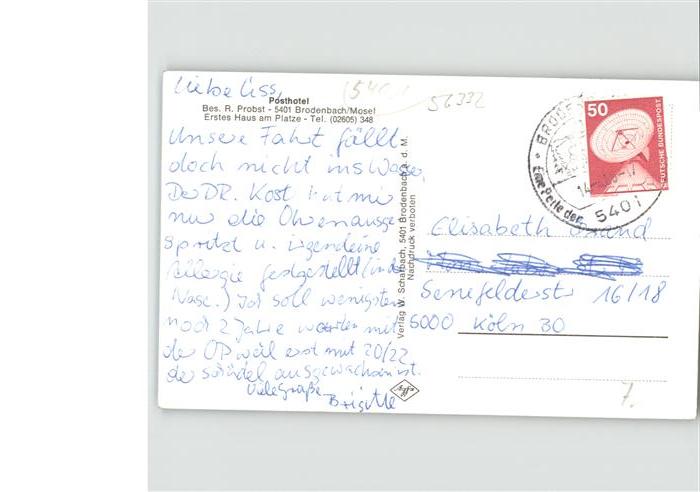 Liebe Liss,
Posthotel
Bes. R. Probst - 5401 Brodenbach/Mosel
Erstes Haus am Platze - Tel. (02605) 348
56332
Unsere Fahrt fällt
doch nicht ins Wasser,
Der DR. Kost hat mir
nur die Ohren ausge
spritzt u. irgendeine
Allergie festgestellt (in der
Nase.) Ich soll wenigstens
noch 2 Jahre warten mit
der OP weil erst mit 20/22
der Schädel ausgewachsen ist.
Viele Grüße
Brigitte
Verlag W. Scharbach, 5401 Brodenbach a. d. M.
Nachdruck verboten
50
DEUTSCHE BUNDESPOST
Eine Perle der
5401
Elisabeth
Senefelderstr 16/18
5000 Köln 30
7.